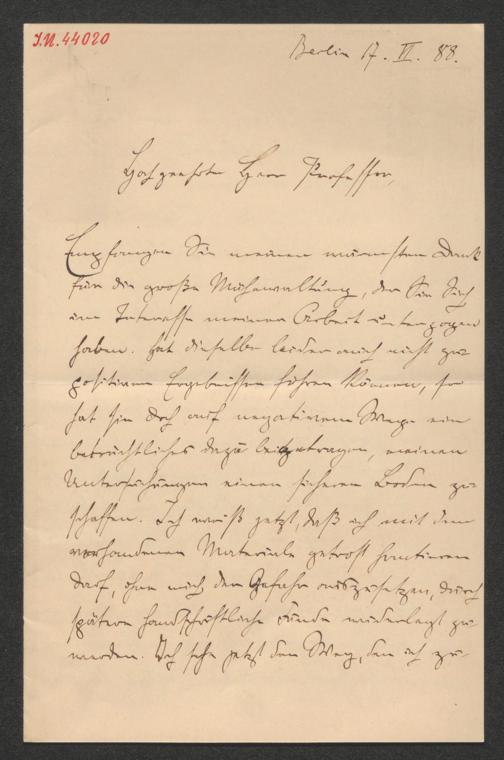 I.N. 44020
Berlin 17. VI. 88.
Hochgeehrter Herr Professor,
Empfangen Sie meinen wärmsten Dank
für die große Mühewaltung, der Sie Sich
im Interesse meiner Arbeit unterzogen
haben. Hat dieselbe leider auch nicht zu
positiven Ergebnissen führen können, so
hat sie doch auf negativem Wege ein
beträchtliches dazu beigetragen, meinen
Untersuchungen einen sicheren Boden zu
schaffen. Ich weiß jetzt, daß ich mit dem
vorhandenen Materiale getrost hantieren
darf, ohne mich der Gefahr auszusetzen, durch
spätere handschriftliche Funde widerlegt zu
werden. Ich sehe jetzt den Weg, den ich zu